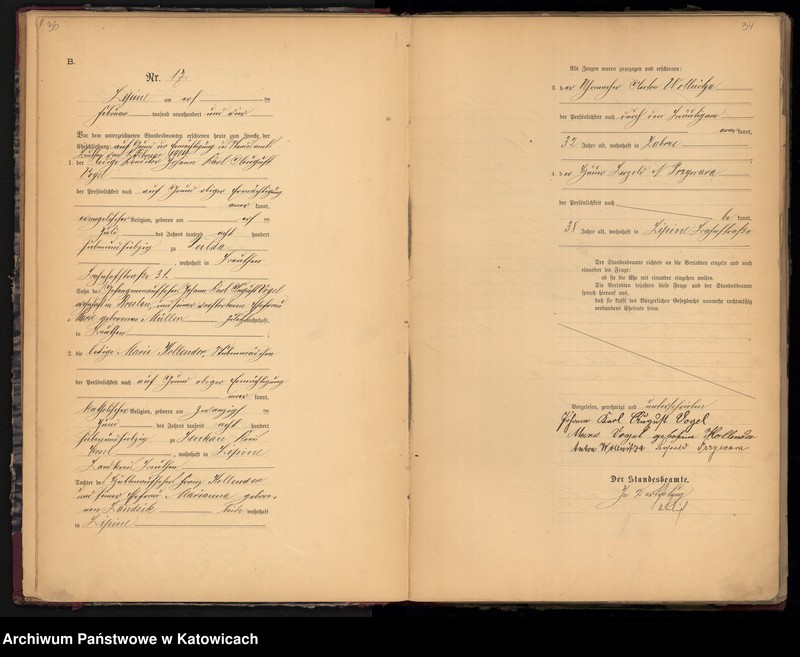 33
B.
Nr. 17.
Lipine am elf ten
Februar tausend neunhundert und vier
Vor dem unterzeichneten Standesbeamten erschienen heute zum Zweck der
Eheschließung: auf Grund der Ermächtigung des Standesamts
1. der ledige Johann Karl August
Vogel
der Persönlichkeit nach auf Grund obiger Ermächtigung
anerkannt,
evangelischer Religion, geboren am elf ten
Juli des Jahres tausend acht hundert
siebenundsiebzig zu
, wohnhaft in Beuthen
Bahnhofstraße 31.
Sohn des Johann Karl August Vogel
wohnhaft in Breslau, und seiner verstorbenen Ehefrau
Marie geborenen Müller zuletzt wohnhaft
in Beuthen ;
2. die ledige Marie Hollender, Stubenmädchen
der Persönlichkeit nach auf Grund obiger Ermächtigung
anerkannt,
katholischer Religion, geboren am zwanzig ten
Juni des Jahres tausend acht hundert
siebenundsiebzig zu Kreis
Kosel , wohnhaft in Lipine
Landkreis Beuthen
Tochter des Franz Hollender
und seiner Ehefrau Marianna gebore-
nen beide wohnhaft
in Lipine
34
Als Zeugen waren zugezogen und erschienen:
3. der Uhrmacher Anton Wollnitza
der Persönlichkeit nach durch den Bräutigam
anerkannt,
32 Jahre alt, wohnhaft in Zabrze
4. der Häuer Przywara
der Persönlichkeit nach
be kannt,
38 Jahre alt, wohnhaft in Lipine Bahnstraße
Der Standesbeamte richtete an die Verlobten einzeln und nach
einander die Frage:
ob sie die Ehe mit einander eingehen wollen.
Die Verlobten bejahten diese Frage und der Standesbeamte
sprach hierauf aus,
daß sie kraft des Bürgerlichen Gesetzbuchs nunmehr rechtmäßig
verbundene Eheleute seien.
Vorgelesen, genehmigt und unterschrieben
Johann Karl August Vogel
Marie Vogel geborene Hollender
Anton Wollnitza Przywara
Der Standesbeamte.
In Vertretung
Archiwum Państwowe w Katowicach